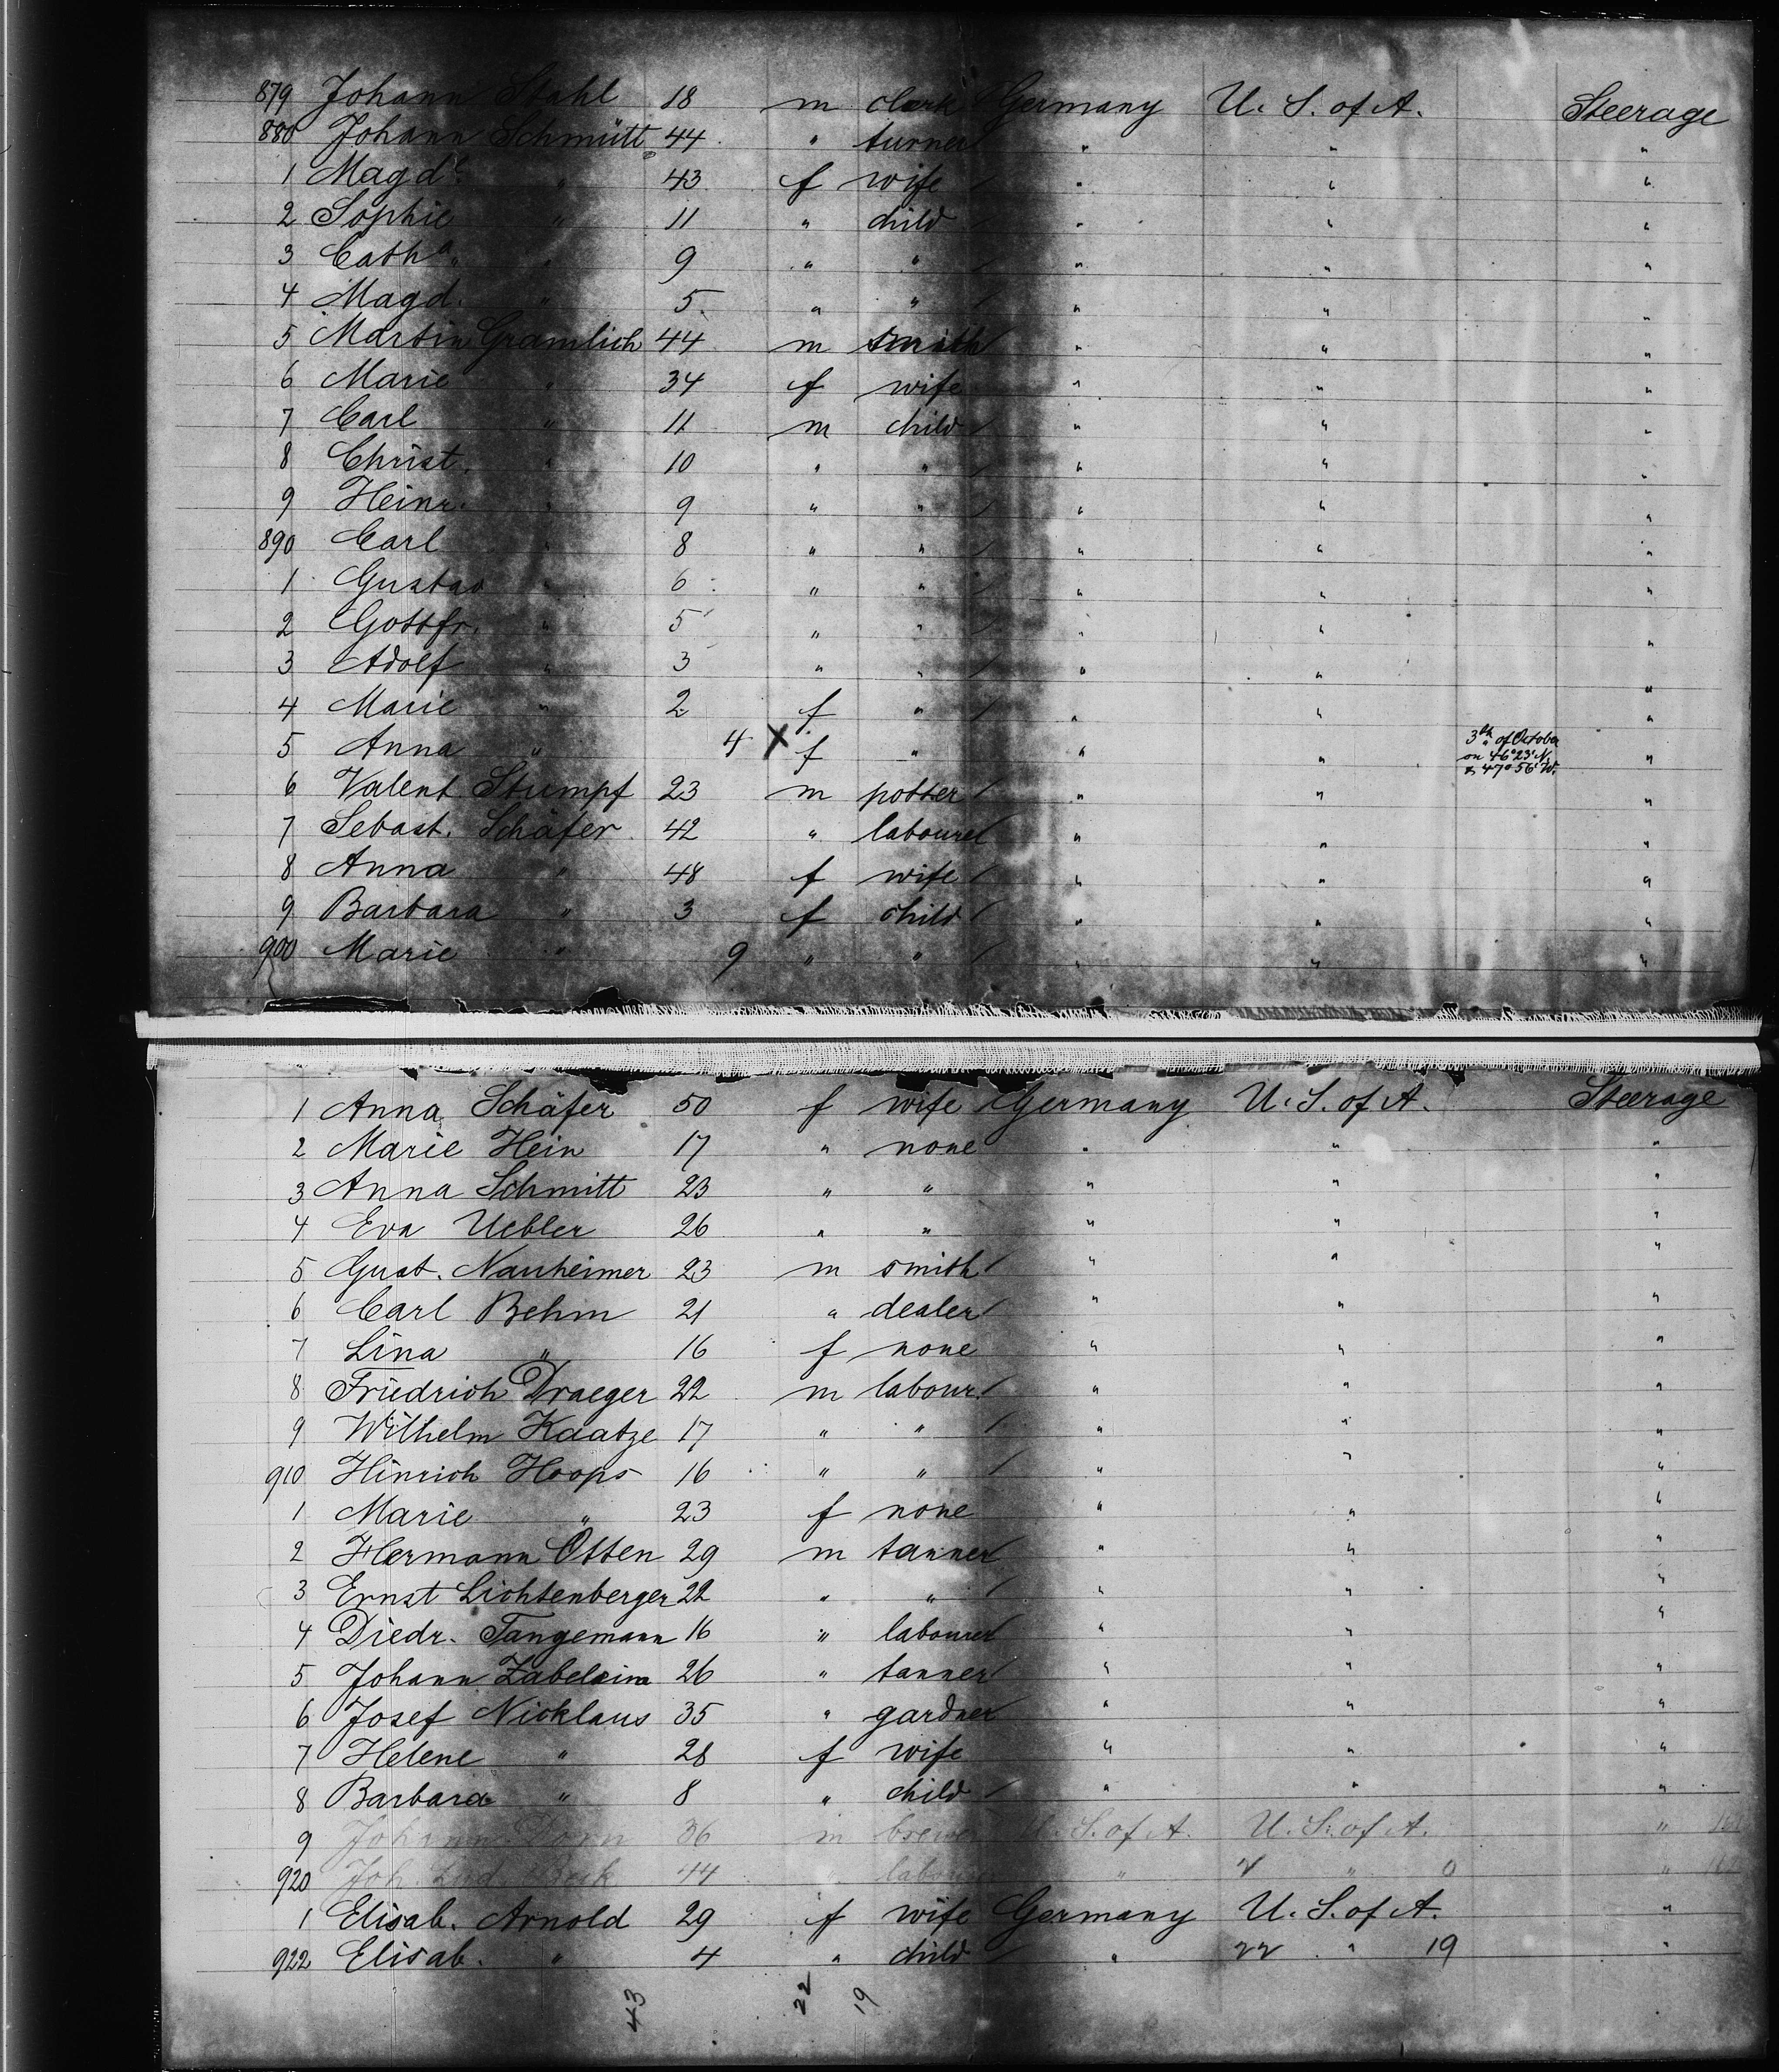 879 Johann Stahl 18 m clerk Germany U. S. of A. Steerage
880 Johann Schmütt 44 " turner " " "
1 Magd.e " 43 f wife " " "
2 Sophie " 11 " child " " "
3 Catha. " 9 " " " " "
4 Magd. " 5 " " " " "
5 Martin Gramlich 44 m smith " " "
6 Marie " 34 f wife " " "
7 Carl " 11 m child " " "
8 Christ. " 10 " " " " "
9 Heinr. " 9 " " " " "
890 Carl " 8 " " " " "
1 Gustav " 6 " " " " "
2 Gottfr. " 5 " " " " "
3 Adolf " 3 " " " " "
4 Marie " 2 f " " " "
5 Anna " 4 X f " " " 3th of October on 46°23' N. & 47°56' W. "
6 Valent Stumpf 23 m potter " " "
7 Sebast. Schäfer 42 " labourer " " "
8 Anna " 48 f wife " " "
9 Barbara " 3 f child " " "
900 Marie " 9 " " " " "
1 Anna Schäfer 50 f wife Germany U. S. of A. Steerage
2 Marie Hein 17 " none " " "
3 Anna Schmitt 23 " " " " "
4 Eva Uebler 26 " " " " "
5 Gust. Nauheimer 23 m smith " " "
6 Carl Behm 21 " dealer " " "
7 Lina " 16 f none " " "
8 Friedrich Draeger 22 m labour. " " "
9 Wilhelm Kaatze 17 " " " " "
910 Hinrich Hoops 16 " " " " "
1 Marie " 23 f none " " "
2 Hermann Otten 29 m tanner " " "
3 Ernst Lichtenberger 22 " " " " "
4 Diedr. Tangemann 16 " labourer " " "
5 Johann 26 " tanner " " "
6 Josef Nicklaus 35 " gardner " " "
7 Helene " 28 f wife " " "
8 Barbara " 8 " child " " "
9 Johann Dorn 36 m brewer U. S. of A. U. S. of A. "
920 Joh. Beck 44 " labour " " 0 "
1 Elisab. Arnold 29 f wife Germany U. S. of A. "
922 Elisab. " 4 " child " 22 " 19 "
43 22 19